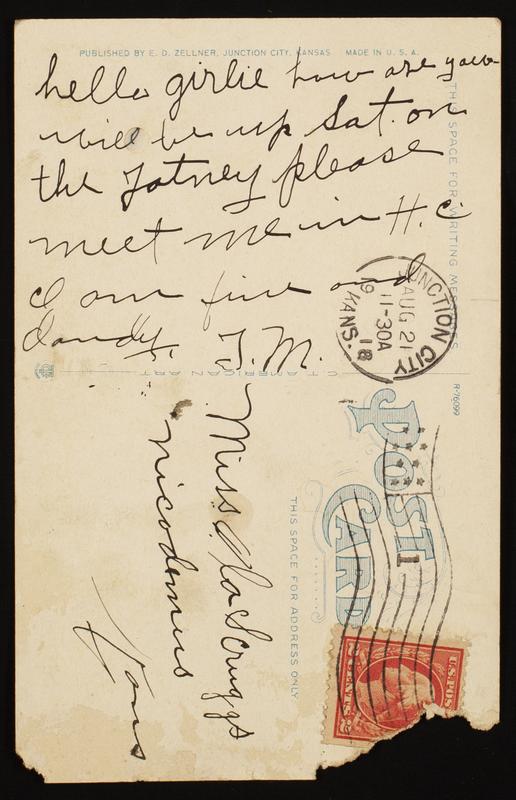 PUBLISHED BY E. D. ZELLNER, JUNCTION CITY, KANSAS MADE IN U. S. A.
hello girlie how are you
will be up Sat. on
the Jotney please
meet me in H. C.
I am fine and
dandy. J. M.
THIS SPACE FOR WRITING
JUNCTION CITY
AUG 21
11-30A
19 18
KANS.
C.T. AMERICAN ART
R-76099
POST CARD
THIS SPACE FOR ADDRESS ONLY
Miss Ola Scruggs
Nicodemus
Kans
1
U.S. POS
2 CENTS 2